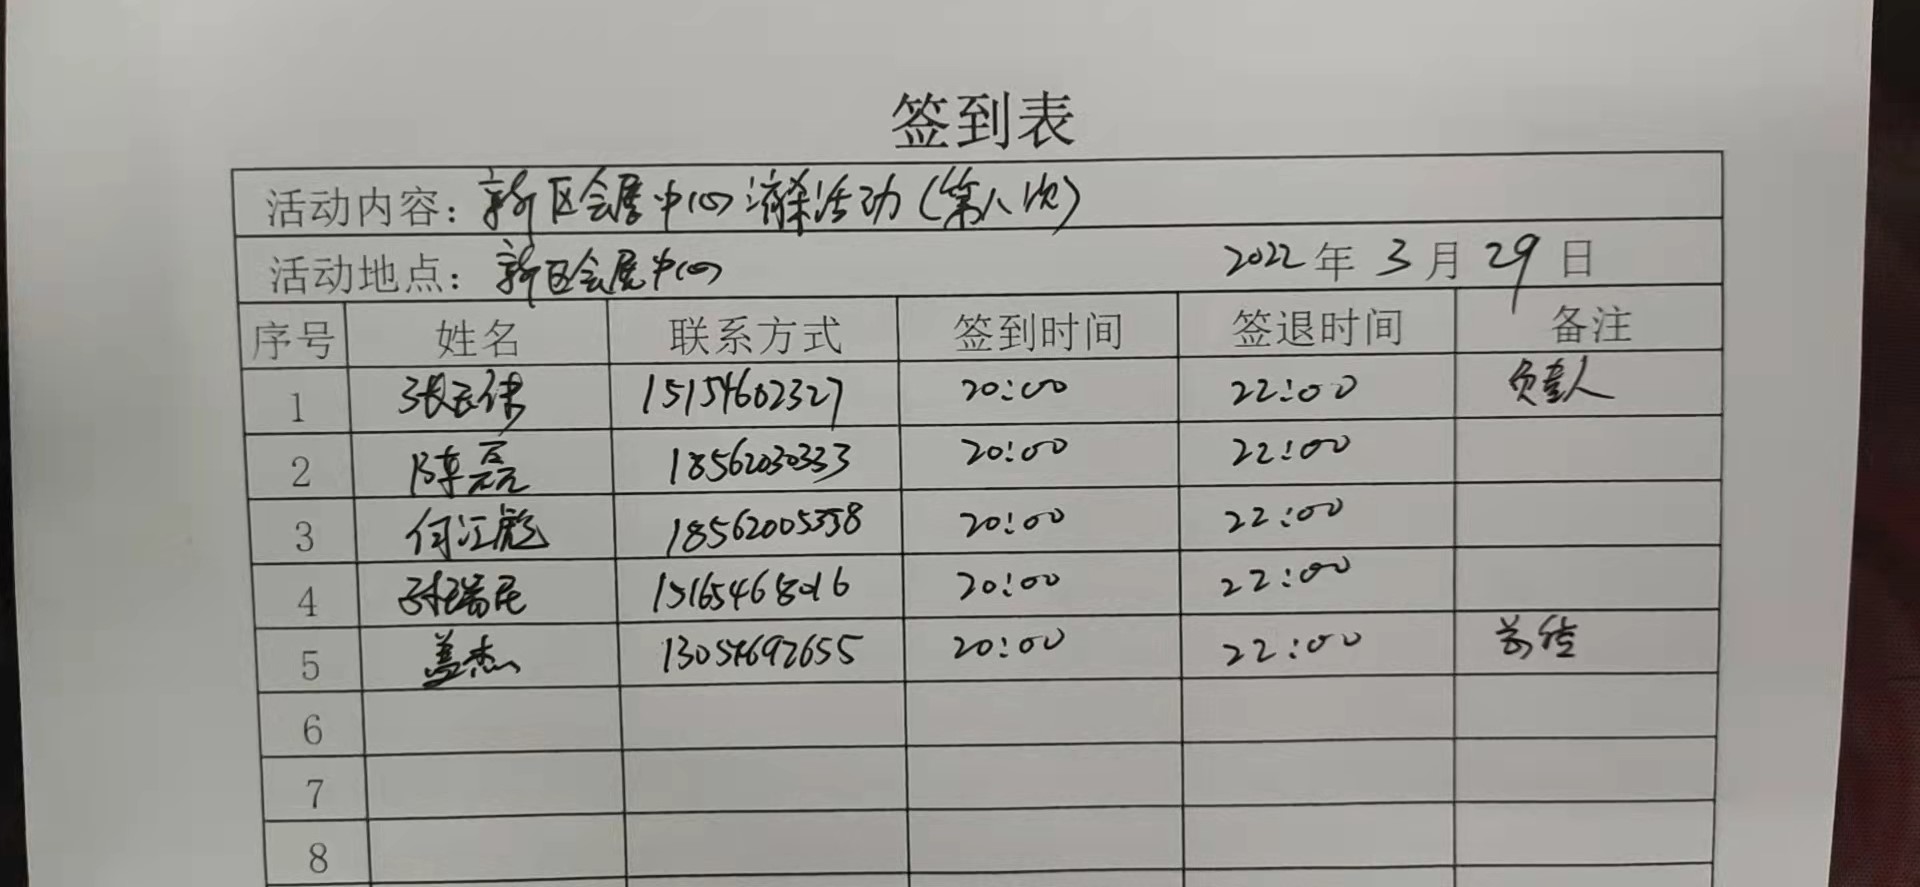 签到表
活动内容：新区会展中心消杀活动（第八次）
活动地点：新区会展中心 2022年3月29日
序号 姓名 联系方式 签到时间 签退时间 备注
1 15154602327 20:00 22:00 负责人
2 陈磊 18562030333 20:00 22:00
3 何江彪 18562005358 20:00 22:00
4 孙瑞民 15165468016 20:00 22:00
5 盖杰 13054692655 20:00 22:00
6
7
8